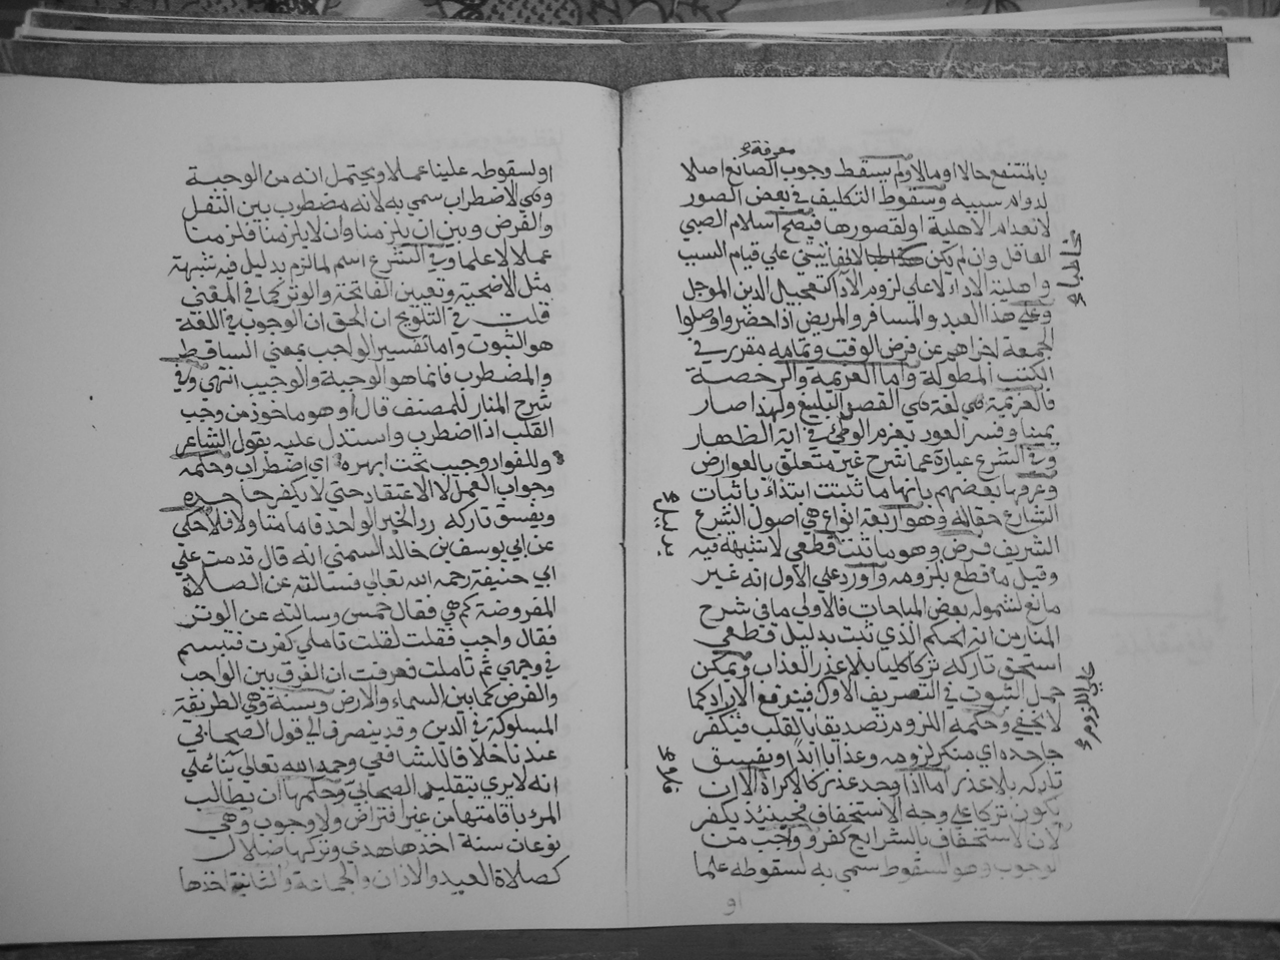 معرفة
بالمنتفع حالا او مالا ولم يسقط وجوب الصانع اصلا
لدوام سببه وسقوط التكليف في بعض الصور
لانعدام الاهلية او لقصورها فيصح اسلام الصبي
العاقل وان لم يكن يبتني علي قيام السبب
واهلية الاداء لا علي لزوم الاداء كتعجيل الدين الموجل
وعلي هذا العبد والمسافر والمريض اذا حضروا وصلوا
الجمعة اجزاهم عن فرض الوقت وتمامه مقرر في
الكتب المطولة واما العزيمة والرخصة
فالعزيمة هي لغة هي القصد البليغ ولهذا صار
يمينا وفسر العود بعزم الوطئ في اية الظهار
وفي الشرع عبارة عما شرع غير متعلق بالعوارض
وعرفها بعضهم بانها ما ثبتت ابتداء باثبات
الشارع حقا له وهو اربعة انواع هي اصول الشرع
الشريف فرض وهو ما ثبت قطعي لا شبهة فيه
بدليل
وقيل ما قطع بلزومه واورد علي الاول انه غير
مانع لشموله بعض المباحات فالاولي ما في شرح
المنار من انه الحكم الذي ثبت بدليل قطعي
استحق تاركه تركا كليا بلا عذر العذاب ويمكن
حمل الثبوت في التعريف الاول فيندفع الايراد كما
علي اللزوم
لا يخفي وحكمه اللزوم تصديقا بالقلب فيكفر
جاحده اي منكر لزومه وعذابا ابدا ويفسق
تاركه بلا عذر اما اذا وجد عذر كالاكراه الا ان
فلا
يكون تركا علي وجه الاستخفاف فحينئذ يكفر
لان الاستخفاف بالشرايع كفر و واجب من
الوجوب وهو السقوط سمي به لسقوطه علما
او
او لسقوطه علينا عملا ويحتمل انه من الوجبة
وهي الاضطراب سمي به لانه مضطرب بين النفل
والفرض وبين ان يلزمنا وان لا يلزمنا فلزمنا
عملا لا علما وفي الشرع اسم لما لزم بدليل فيه شبهة
مثل الاضحية وتعيين الفاتحة والوتر كما في المغني
قلت في التلويح ان الحق ان الوجوب في اللغة
هو الثبوت واما تفسير الواجب بمعني الساقط
والمضطرب فانما هو الوجبة والوجيب انتهي وفي
شرح المنار للمصنف قال او هو ماخوذ من وجب
القلب اذا اضطرب واستدل عليه بقول الشاعر
وللفواد وجيب تحت ابهره اي اضطراب وحكمه
وجواب العمل لا الاعتقاد حتي لا يكفر جاحده
ويفسق تاركه رد الخبر الواحد فاما متاولا فلا حكي
عن ابي يوسف بن خالد السمني انه قال قدمت علي
ابي حنيفة رحمه الله تعالي فسالته عن الصلاة
المفروضة كم هي فقال خمس وسالته عن الوتر
فقال واجب فقلت لقلت تاملي كفرت فتبسم
في وجهي ثم تاملت فعرفت ان الفرق بين الواجب
والفرض كما بين السماء والارض وسنة وهي الطريقة
المسلوكة في الدين وقد ينصرف الي قول الصحابي
عندنا خلافا للشافعي رحمه الله تعالي بنا علي
انه لا يري بتقليد الصحابي وحكمها ان يطالب
المرء باقامتها من غير افتراض ولا وجوب وهي
نوعان سنة اخذها هدي وتركها ضلال
كصلاة العيد والاذان والجماعة والثانية اخذها